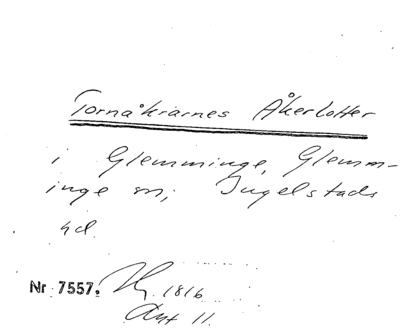 Tornåkrarnes Åkerlotter
i Glemminge, Glemm-
inge sn, Ingelstads
hd.
Nr 7557. 1816
Akt 11.